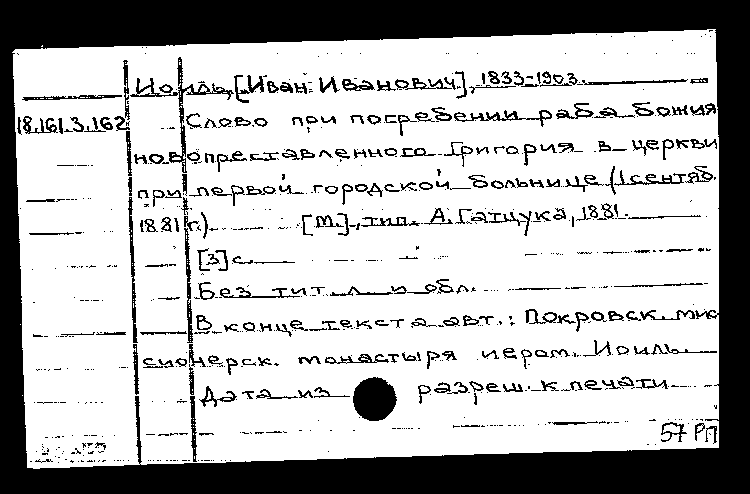 Иоиль, [Иван Иванович], 1833-1903.
18.161.3.162 Слово при погребении раба божия
новопреставленного Григория в церкви
при первой городской больнице (1 сентяб.
1881 г.). [М.], тип. А. Гатцука, 1881.
[3] с.
Без тит. л. и обл.
В конце текста авт.: Покровск. мис
сионерск. монастыря иером. Иоиль.
Дата из разреш. к печати
57 РП